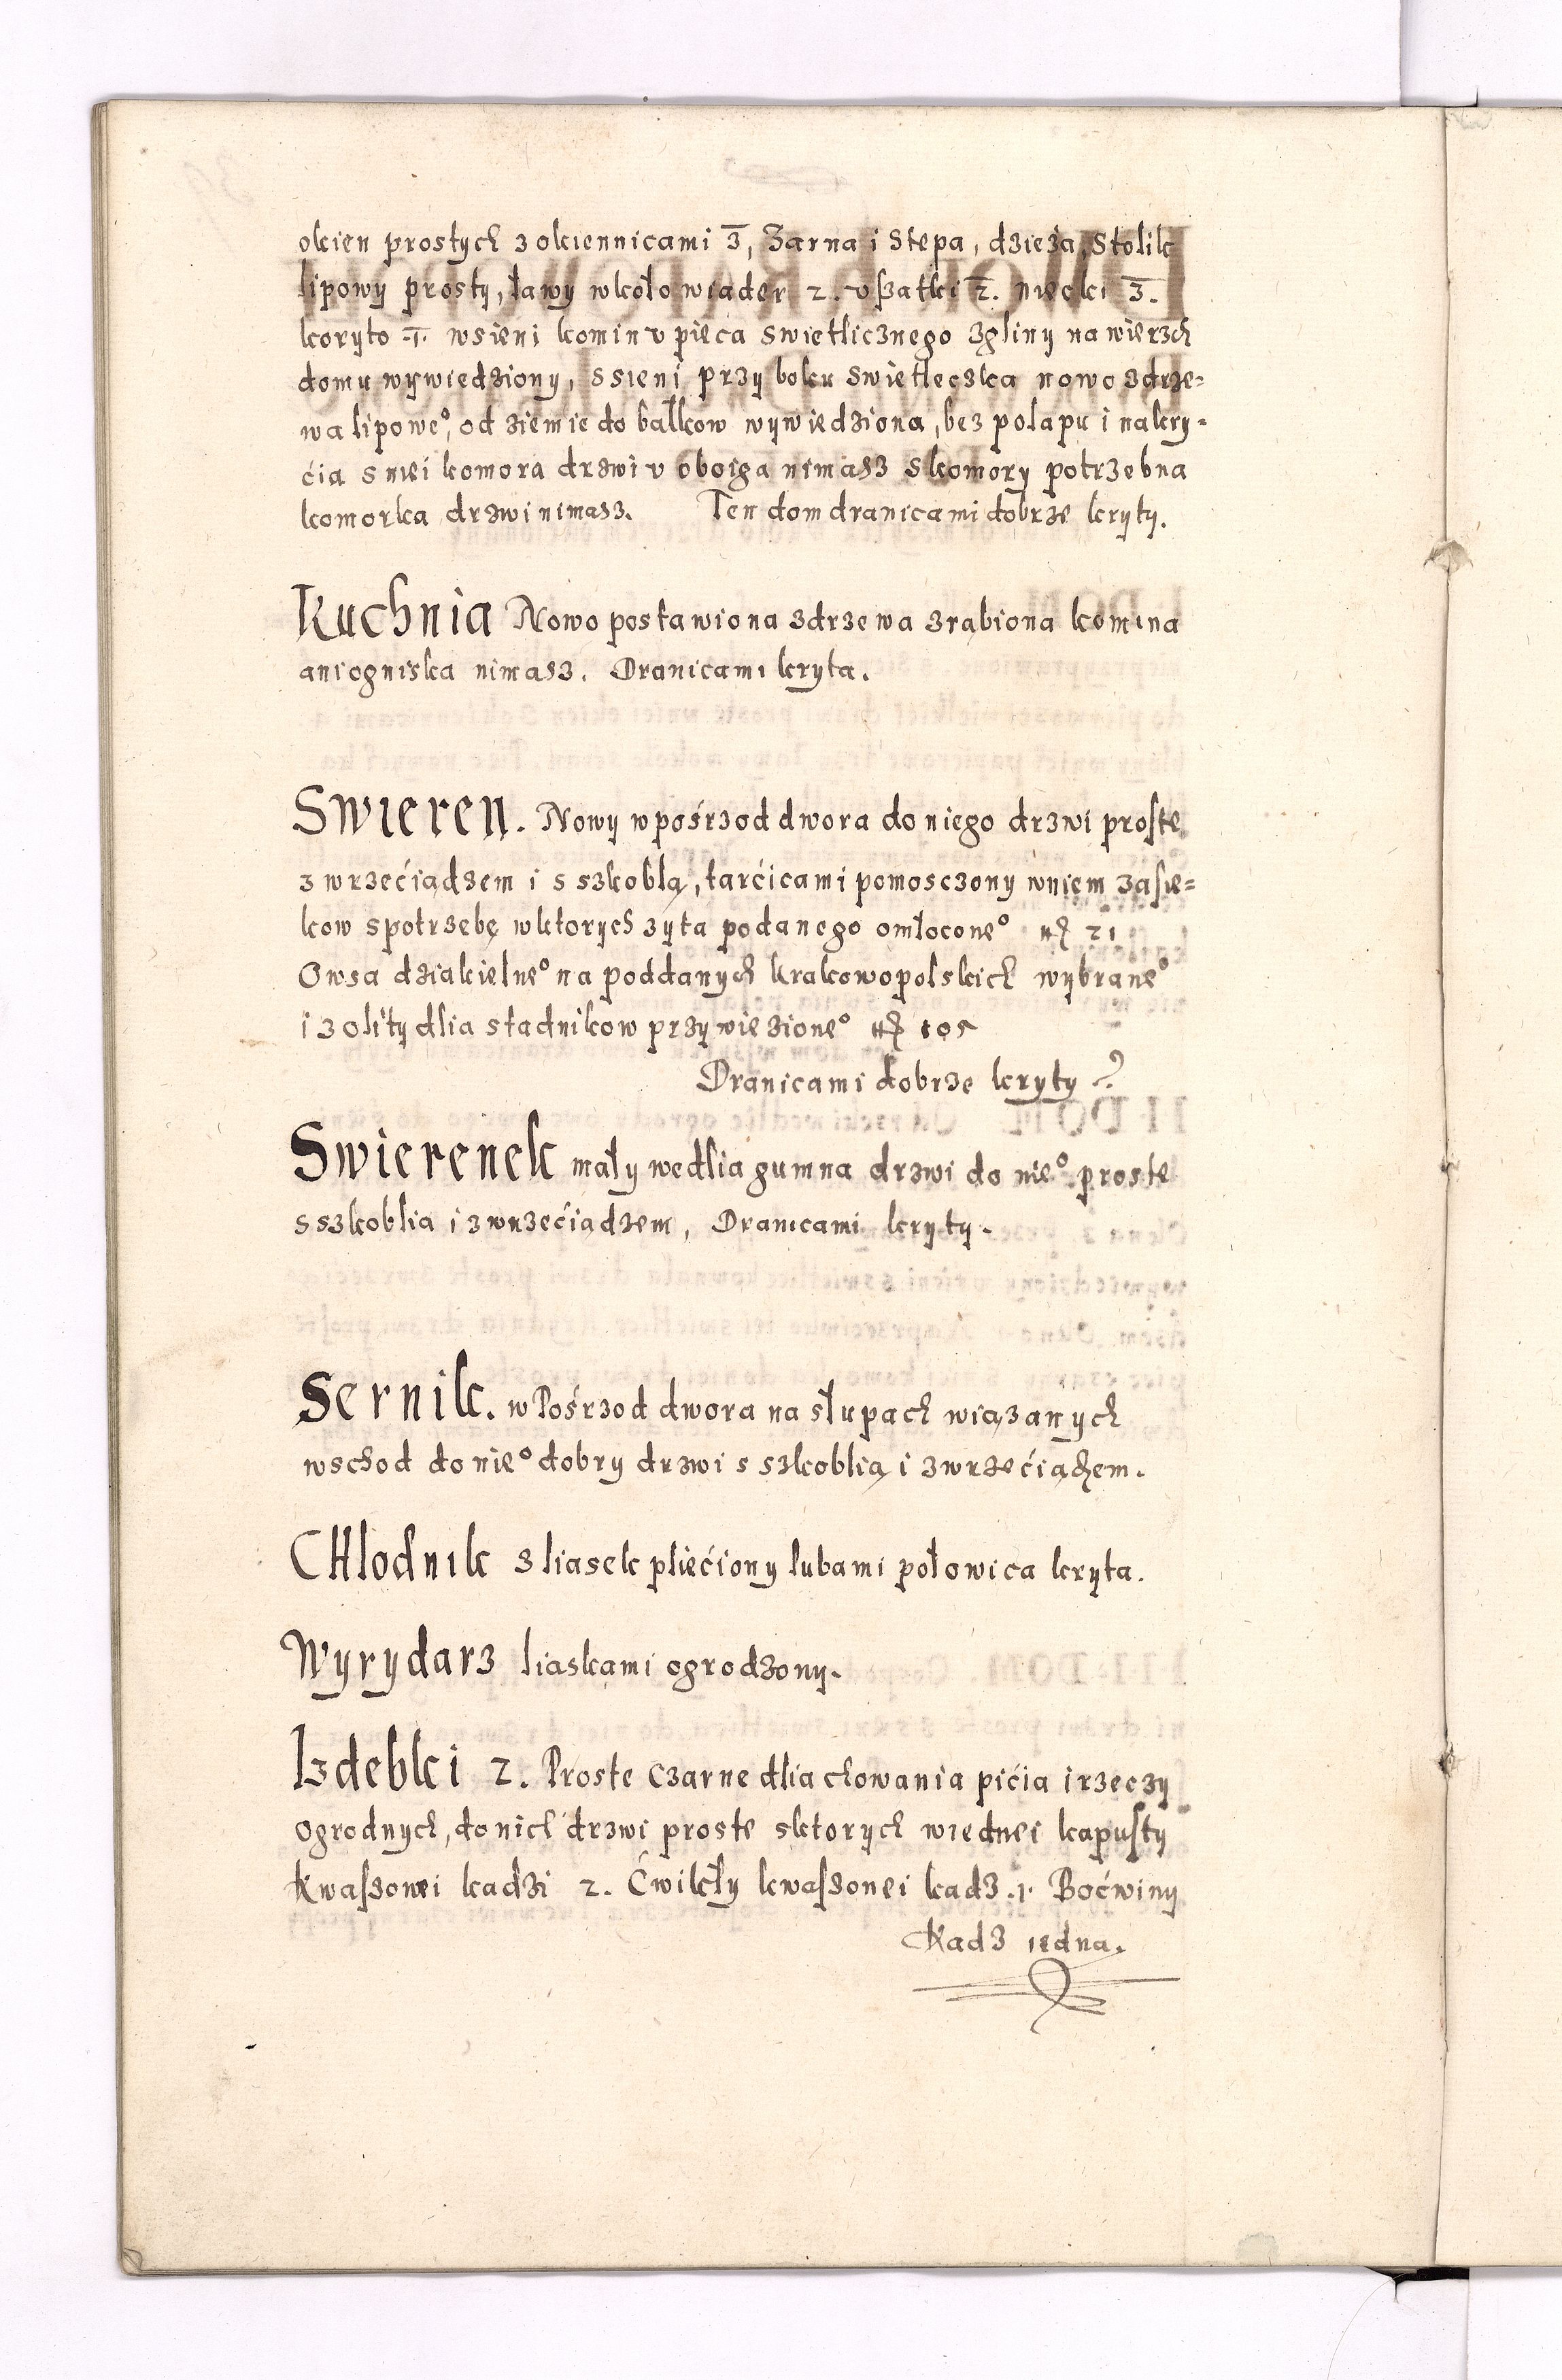 okien prostych z okiennicami 3, Zarna i Stepa, dzieża, Stolik
lipowy prosty, ławy wkoło wiader 2. vßatki 2. niecki 3.
koryto 1. wsieni komin v pieca swietlicznego zgliny na wierzch
domu wywiedziony, s sieni przy boku swietleczka nowo zdrze=
wa lipowe°, od ziemie do balkow wywiedziona, bez polapu i nakry=
ćia s niei komora drzwi v oboiga nimasz s komory potrzebna
komorka drzwi nimasz. Ten dom dranicami dobrze kryty.
Kuchnia Nowo postawiona zdrzewa zrąbiona komina
ani ogniska nimasz. Dranicami kryta.
Swieren. Nowy w pośrzod dwora do niego drzwi proste
z wrzećiądzem i s szkoblą, tarćicami pomosczony wniem zasie=
kow spotrzebę wktorych zyta podanego omłocone° 21
Owsa dziakielne° na poddanych krakowopolskich wybrane°
i z olity dlia stadnikow przywiezione° 105
Dranicami dobrze kryty
Swierenek mały wedlia gumna drzwi do nie° proste
s szkoblia i z wrzećiądzem, Dranicami kryty.
Sernik. w Pośrzod dwora na słupach wiązanych
wschod do nie° dobry drzwi s szkoblią i z wrzećiądzem.
CHlodnik s liasek pliećiony lubami połowica kryta.
Wyrydarz liaskami ogrodzony.
Izdebki 2. Proste czarne dlia chowania pićia i rzeczy
ogrodnych, do nich drzwi proste sktorych wiednei kapusty
Kwaszonei kadzi 2. Ćwikły kwaszonei kadz .1. Boćwiny
Kadz iedna.